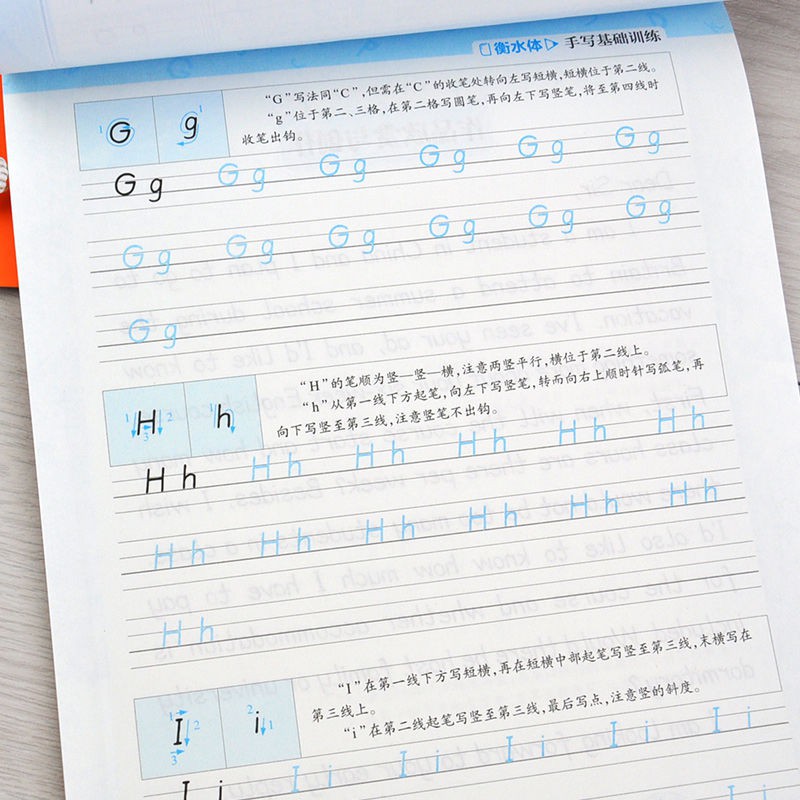 衡水体 手写基础训练
“G”写法同“C”，但需在“C”的收笔处转向左写短横，短横位于第二线。
“g”位于第二、三格，在第二格写圆笔，再向左下写竖笔，将至第四线时
收笔出钩。
1 G g 1
G g G g G g G g G g G g
G g G g G g G g G g G g
G g
“H”的笔顺为竖—竖—横，注意两竖平行，横位于第二线上。
“h”从第一线下方起笔，向左下写竖笔，转而向右上顺时针写弧笔，再
向下写竖至第三线，注意竖笔不出钩。
1 H 2 3 1 h
H h H h H h H h H h H h
H h H h H h H h H h H h
H h
“I”在第一线下方写短横，再在短横中部起笔写竖至第三线，末横写在
第三线上。
“i”在第二线起笔写竖至第三线，最后写点，注意竖的斜度。
1 I 2 3 2 i 1
I i I i I i I i I i I i